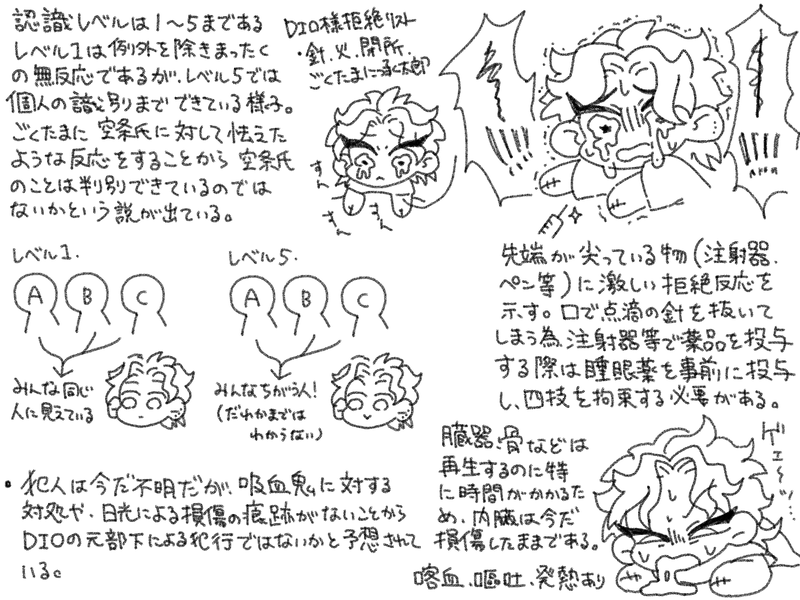 認識レベルは1〜5まである
レベル1は例外を除きまったく
の無反応であるが、レベル5では
個人の識別までできている様子。
ごくたまに空条氏に対して怯えた
ような反応をすることから空条氏
のことは判別できているのでは
ないかという説が出ている。
DIO様拒絶リスト
・針、火、閉所、
ごくたまに承太郎
すん
すん
すん
先端が尖っている物(注射器、
ペン等)に激しい拒絶反応を
示す。口で点滴の針を抜いて
しまう為、注射器等で薬品を投与
する際は睡眠薬を事前に投与
し、四技を拘束する必要がある。
レベル1.
A B C
みんな同じ
人に見えている
レベル5.
A B C
みんなちがう人!
(だれかまでは
わからない)
臓器、骨などは
再生するのに特
に時間がかかるた
め、内臓は今だ
損傷したままである。
ゲェ〜ッ...
喀血、嘔吐、発熱あり
・犯人は今だ不明だが、吸血鬼に対する
対処や、日光による損傷の痕跡がないことから
DIOの元部下による犯行ではないかと予想されて
いる。